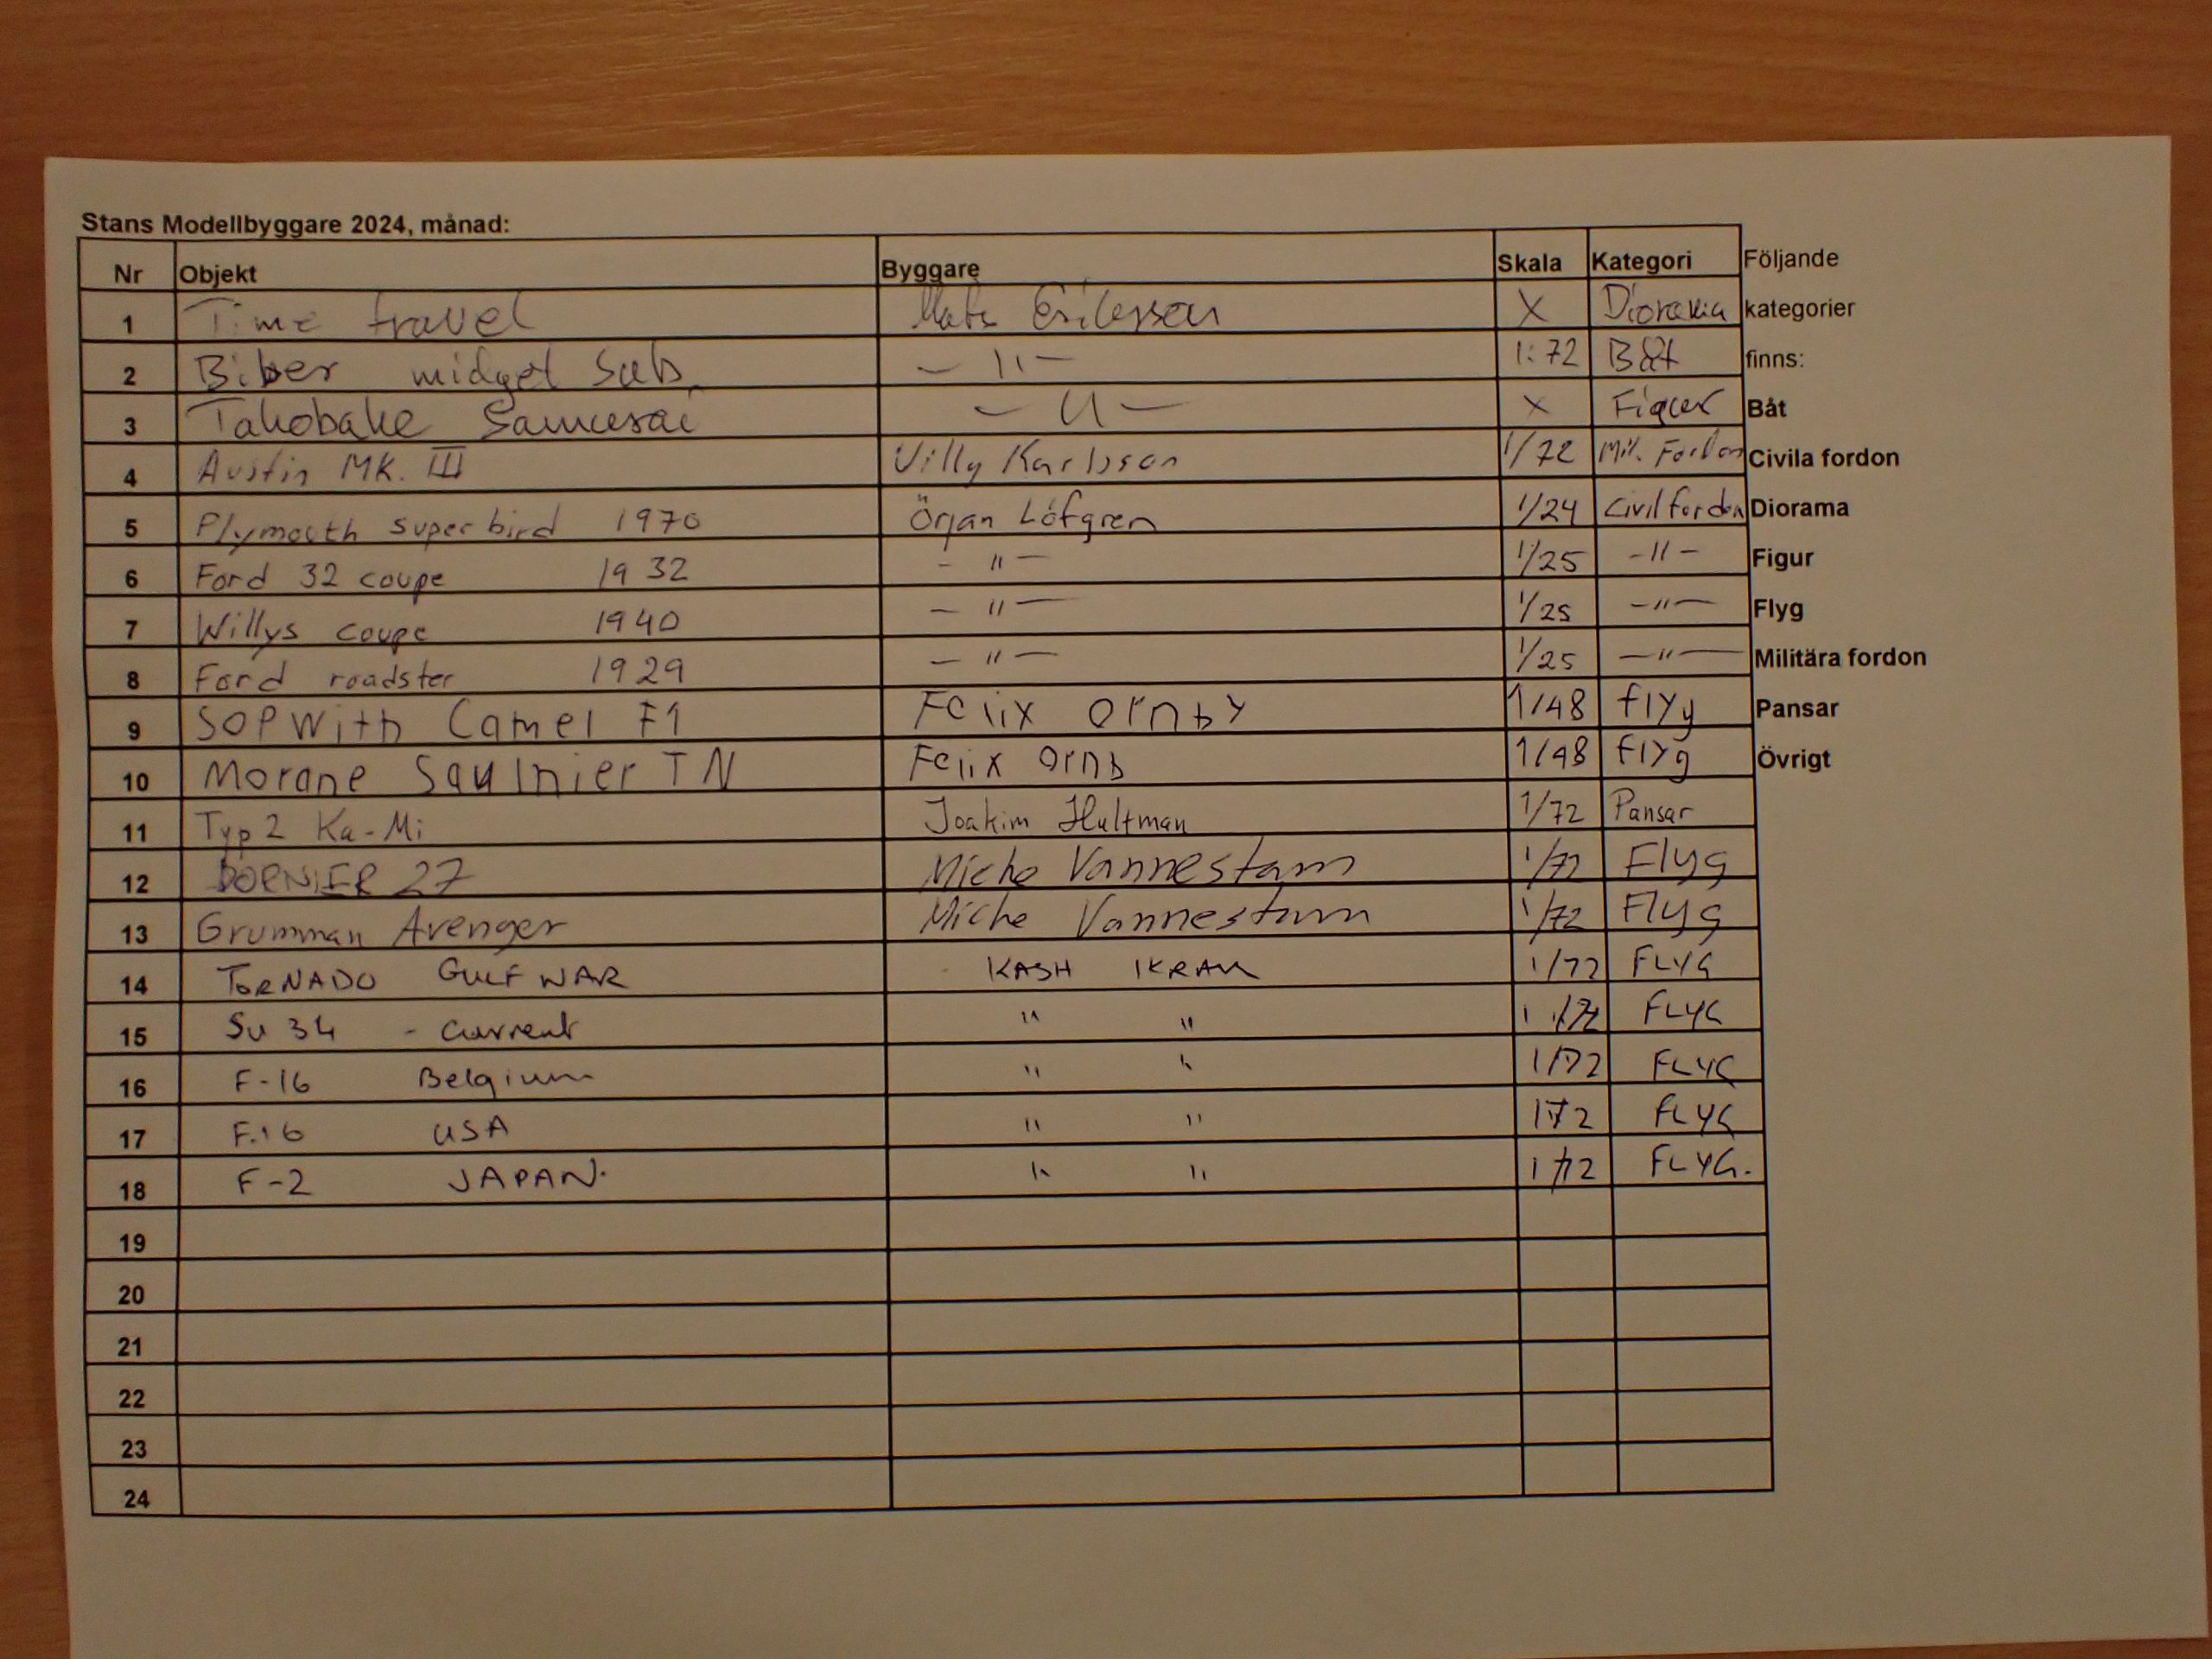 Stans Modellbyggare 2024, månad:
Nr Objekt Byggare Skala Kategori Följande
1 Time travel Mats Ericsson X Diorama kategorier
2 Biber midget Sub. — 11 — 1:72 Båt finns:
3 Takobake Samurai — 11 — X Figur Båt
4 Austin MK. III Villy Karlsson 1/72 Mil. Fordon Civila fordon
5 Plymouth super bird 1970 Örjan Löfgren 1/24 Civil fordon Diorama
6 Ford 32 coupe 1932 - " — 1/25 - " - Figur
7 Willys coupe 1940 — " — 1/25 — " — Flyg
8 Ford roadster 1929 — " — 1/25 — " — Militära fordon
9 SOPWith Camel F1 Felix Ornby 1/48 flyg Pansar
10 Morane Saulnier TN Felix Ornb 1/48 flyg Övrigt
11 Typ 2 Ka-Mi Joakim Hultman 1/72 Pansar
12 DORNIER 27 Micke Vannestam 1/72 Flyg
13 Grumman Avenger Micke Vannestam 1/72 Flyg
14 TORNADO GULF WAR KASH IKRAM 1/72 FLYG
15 Su 34 - Current " " 1/72 FLYG
16 F-16 Belgium " " 1/72 FLYG
17 F.16 USA " " 1/72 FLYG
18 F-2 JAPAN. " " 1/72 FLYG.
19
20
21
22
23
24